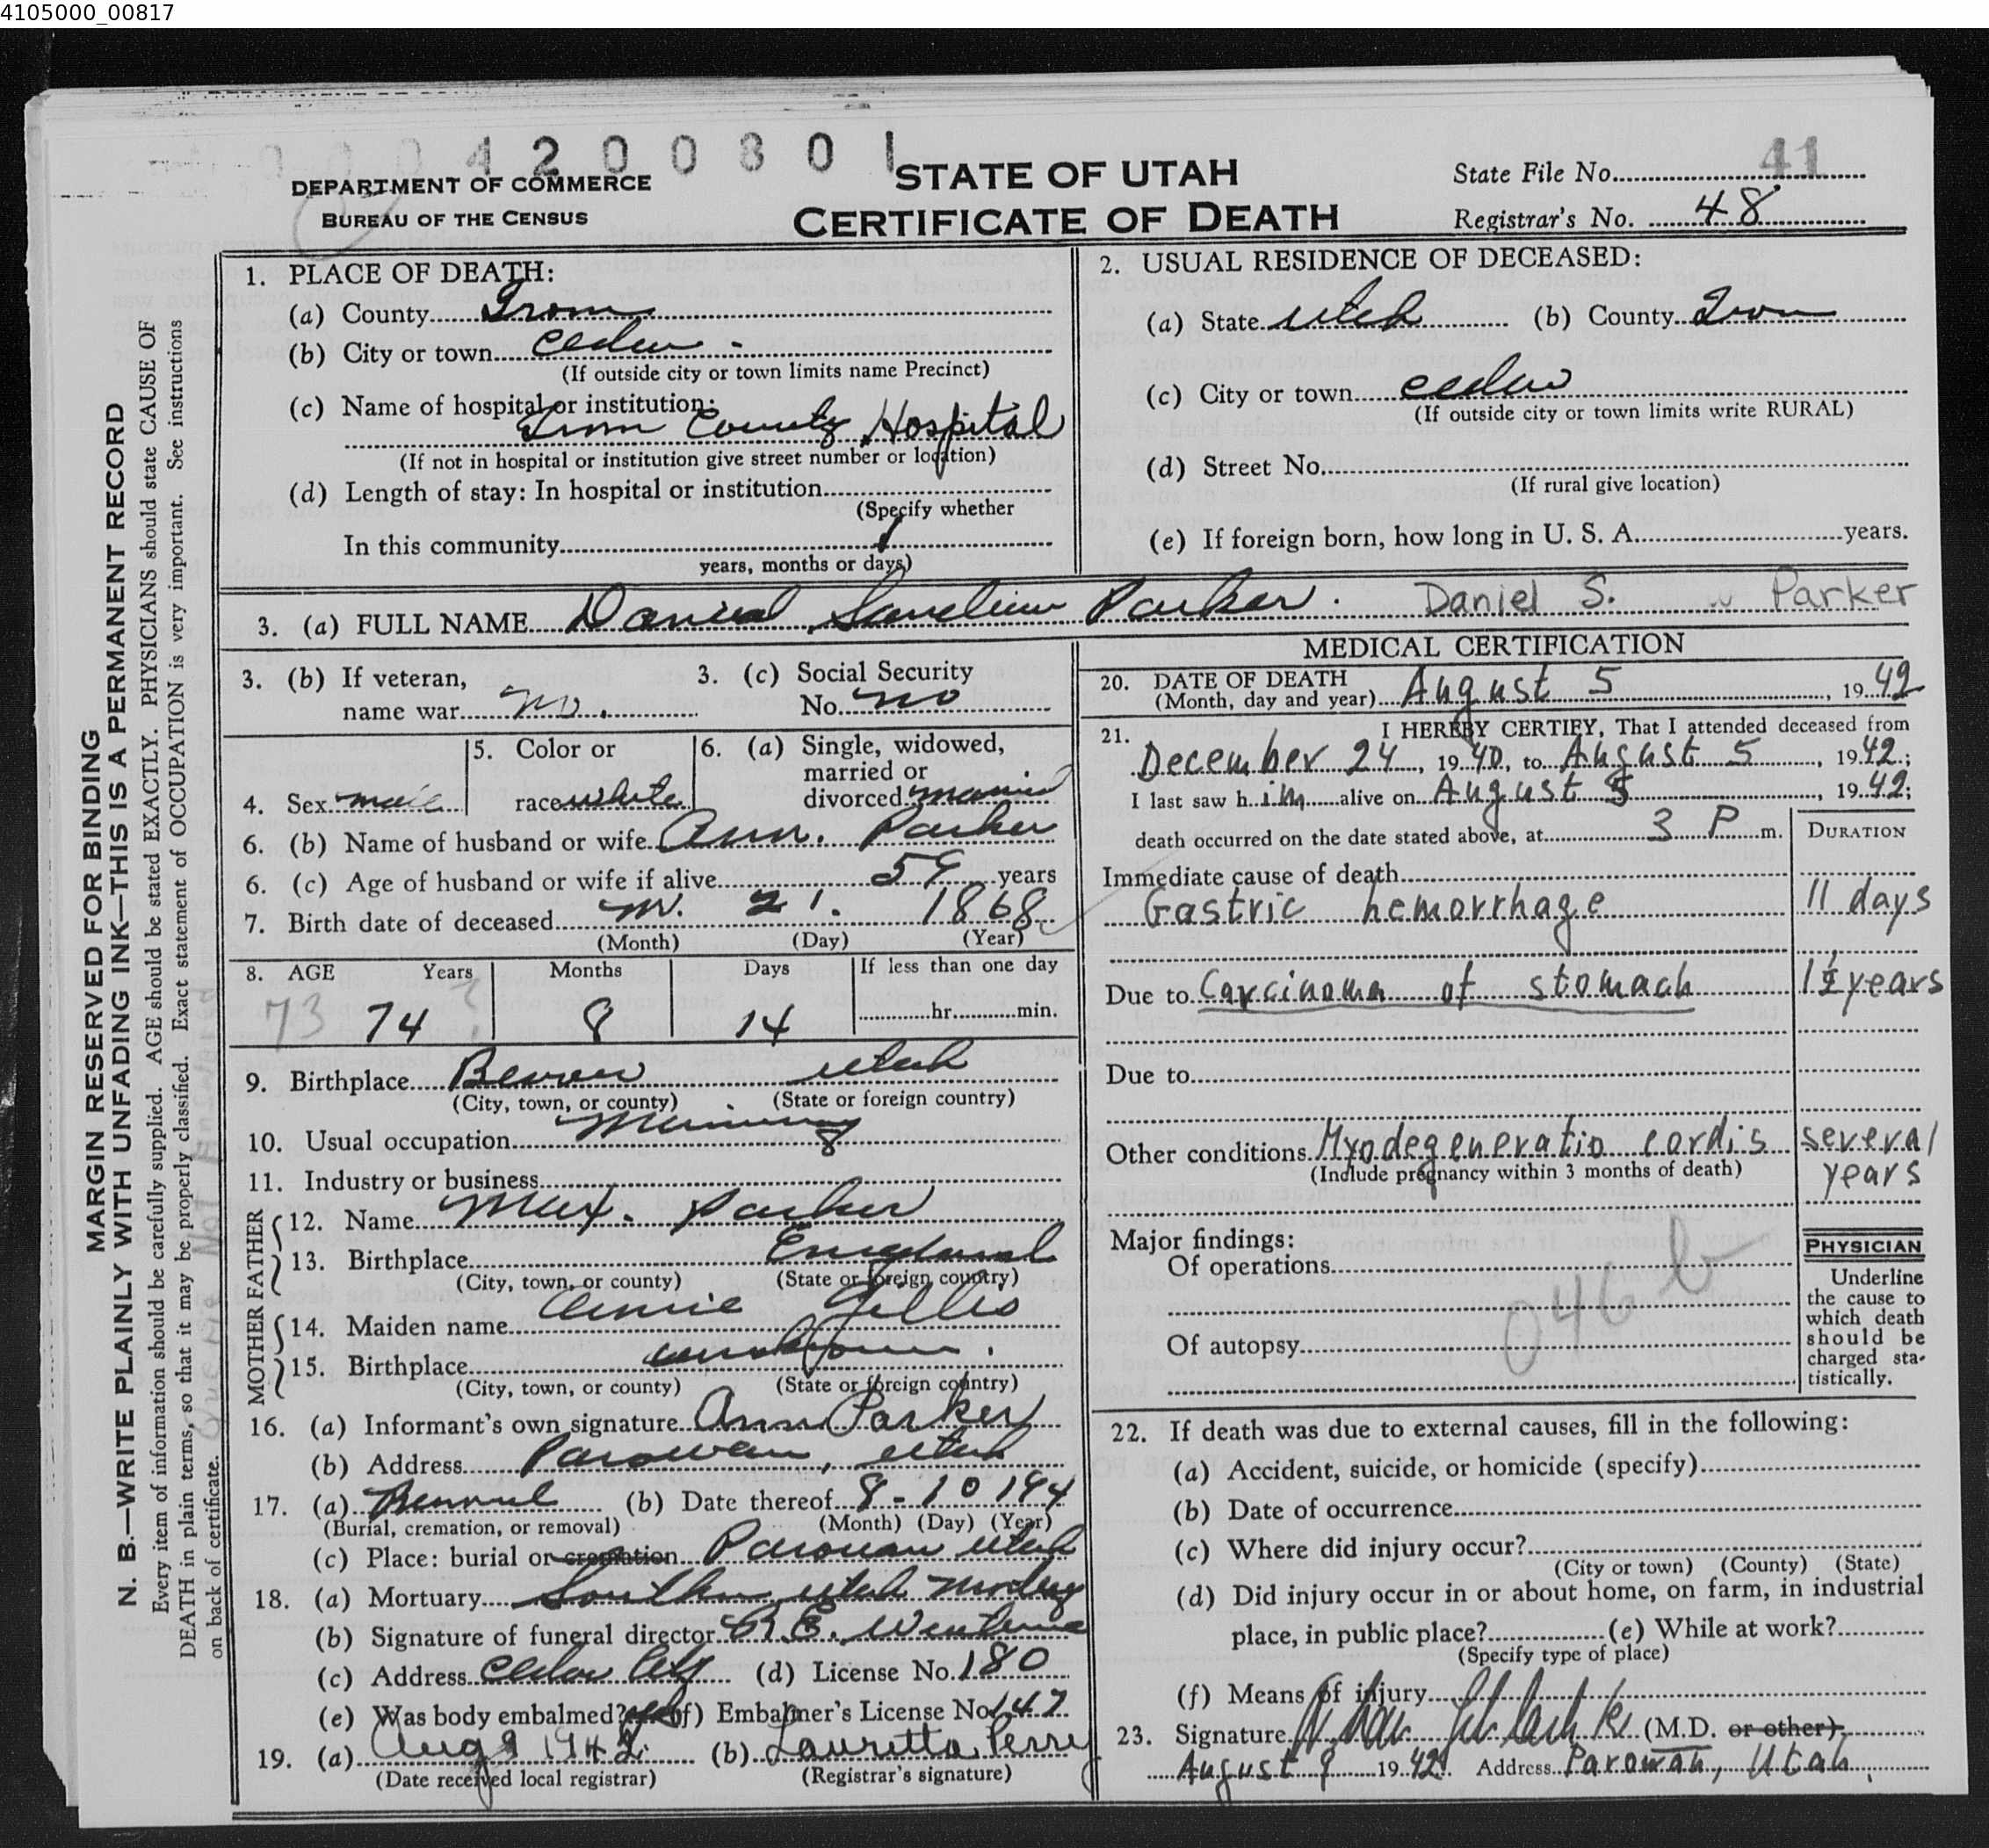 4105000_00817
0 0 0 4 2 0 0 8 0 1
41
DEPARTMENT OF COMMERCE
BUREAU OF THE CENSUS
STATE OF UTAH
CERTIFICATE OF DEATH
State File No.
Registrar's No. 48
MARGIN RESERVED FOR BINDING
N. B.—WRITE PLAINLY WITH UNFADING INK—THIS IS A PERMANENT RECORD
Every item of information should be carefully supplied. AGE should be stated EXACTLY. PHYSICIANS should state CAUSE OF
DEATH in plain terms, so that it may be properly classified. Exact statement of OCCUPATION is very important. See instructions
on back of certificate.
1. PLACE OF DEATH:
(a) County Iron
(b) City or town Cedar
(If outside city or town limits name Precinct)
(c) Name of hospital or institution:
Iron County Hospital
(If not in hospital or institution give street number or location)
(d) Length of stay: In hospital or institution
(Specify whether
In this community
years, months or days)
2. USUAL RESIDENCE OF DECEASED:
(a) State Utah (b) County Iron
(c) City or town Cedar
(If outside city or town limits write RURAL)
(d) Street No.
(If rural give location)
(e) If foreign born, how long in U. S. A. years.
3. (a) FULL NAME Daniel Parker. Daniel S. Parker
3. (b) If veteran, name war no. 3. (c) Social Security No. no
4. Sex male 5. Color or race white 6. (a) Single, widowed, married or divorced married
6. (b) Name of husband or wife Ann. Parker
6. (c) Age of husband or wife if alive 59 years
7. Birth date of deceased 21. 1868
(Month) (Day) (Year)
8. AGE Years Months Days If less than one day
73 74 8 14 hr. min.
9. Birthplace Beaver Utah
(City, town, or county) (State or foreign country)
10. Usual occupation Mining
11. Industry or business
FATHER
12. Name Max. Parker
13. Birthplace England
(City, town, or county) (State or foreign country)
MOTHER
14. Maiden name Annie Gillis
15. Birthplace unknown.
(City, town, or county) (State or foreign country)
16. (a) Informant's own signature Ann Parker
(b) Address Parowan, Utah
17. (a) Removal (b) Date thereof 8-10 194
(Burial, cremation, or removal) (Month) (Day) (Year)
(c) Place: burial or cremation Parowan Utah
18. (a) Mortuary Southern Utah
(b) Signature of funeral director
(c) Address Cedar City (d) License No. 180
(e) Was body embalmed? yes (f) Embalmer's License No. 147
19. (a) Aug 9 1942 (b) Lauretta Perry
(Date received local registrar) (Registrar's signature)
MEDICAL CERTIFICATION
20. DATE OF DEATH
(Month, day and year) August 5, 1942
21. I HEREBY CERTIFY, That I attended deceased from
December 24, 1940, to August 5, 1942;
I last saw him alive on August 5, 1942;
death occurred on the date stated above, at 3 P m. DURATION
Immediate cause of death
Gastric hemorrhage 11 days
Due to Carcinoma of stomach 1½ years
Due to
Other conditions Myodegeneratio cordis several years
(Include pregnancy within 3 months of death)
Major findings:
Of operations
046 b
Of autopsy
PHYSICIAN
Underline
the cause to
which death
should be
charged sta-
tistically.
22. If death was due to external causes, fill in the following:
(a) Accident, suicide, or homicide (specify)
(b) Date of occurrence
(c) Where did injury occur?
(City or town) (County) (State)
(d) Did injury occur in or about home, on farm, in industrial
place, in public place? (e) While at work?
(Specify type of place)
(f) Means of injury
23. Signature (M.D. or other)
August 9 1942. Address Parowan, Utah.